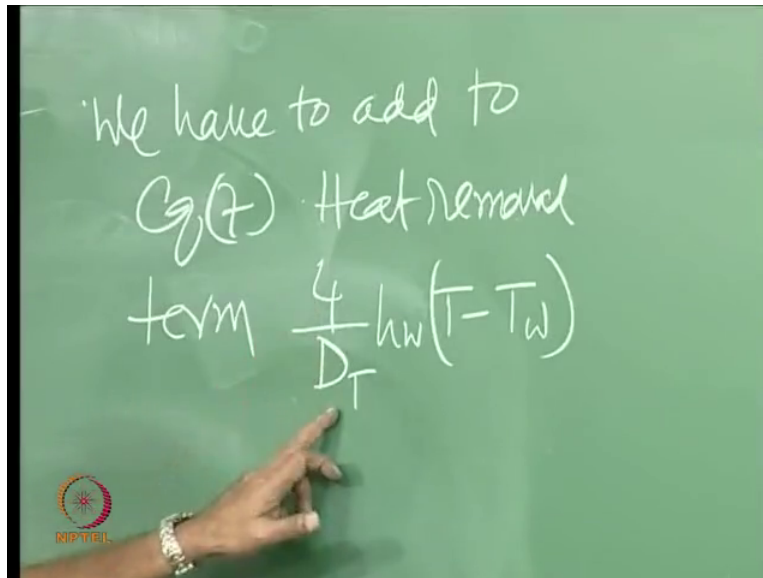 We have to add to
Eq(7) Heat removal
term 4/D_T hw(T - Tw)
NPTEL